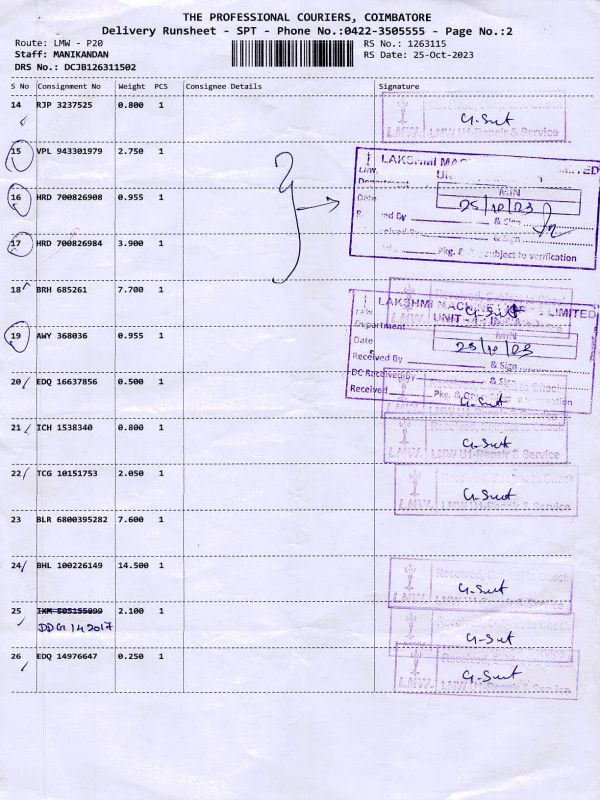 THE PROFESSIONAL COURIERS, COIMBATORE
Delivery Runsheet - SPT - Phone No.:0422-3505555 - Page No.:2
Route: LMW - P20 RS No.: 1263115
Staff: MANIKANDAN RS Date: 25-Oct-2023
DRS No.: DCJB126311502
S No Consignment No Weight PCS Consignee Details Signature
14 RJP 3237525 0.800 1
LMW U1-Repair & Service
15 VPL 943301979 2.750 1
LAKSHMI MAC LIMITED
MIN
Date 25/10/23
16 HRD 700826908 0.955 1
& Sign
Pkg. & subject to verification
17 HRD 700826984 3.900 1
18 BRH 685261 7.700 1
LAKSHMI MAC LIMITED
UNIT
Department MIN
19 AWY 368036 0.955 1
Date 25/10/23
Received By & Sign
DC Received By & Sign
Received Pkg. & verification
20 EDQ 16637856 0.500 1
21 ICH 1538340 0.800 1
LMW U1-Repair & Service
22 TCG 10151753 2.050 1
LMW U1-Repair & Service
23 BLR 6800395282 7.600 1
24 BHL 100226149 14.500 1
Received, Subject to Check
25 2.100 1
DDG 142017
26 EDQ 14976647 0.250 1
LMW U1-Repair & Service